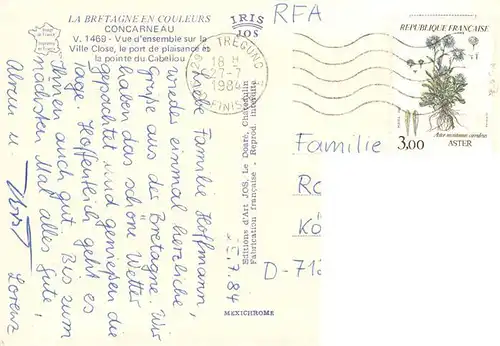 LA BRETAGNE EN COULEURS
CONCARNEAU
V. 1469 - Vue d'ensemble sur la
Ville Close, le port de plaisance et
la pointe du Cabellou
IRIS
JOS
29 TREGUNC
18 H
27-7
1984
FINIS
RFA
REPUBLIQUE FRANCAISE
3,00
ASTER
7.84
Liebe Familie Hoffmann,
wieder einmal herzliche
Grüße aus der Bretagne. Wir
haben das schöne Wetter
gepachtet und genießen die
Tage. Hoffentlich geht es
Ihnen auch gut. Bis zum
nächsten Mal alles Gute,
Lorenz
Editions d'Art JOS, Le Doaré, Châteaulin
Fabrication française. Reprod. interdite
MEXICHROME
Familie
Ro
Kö
D-71